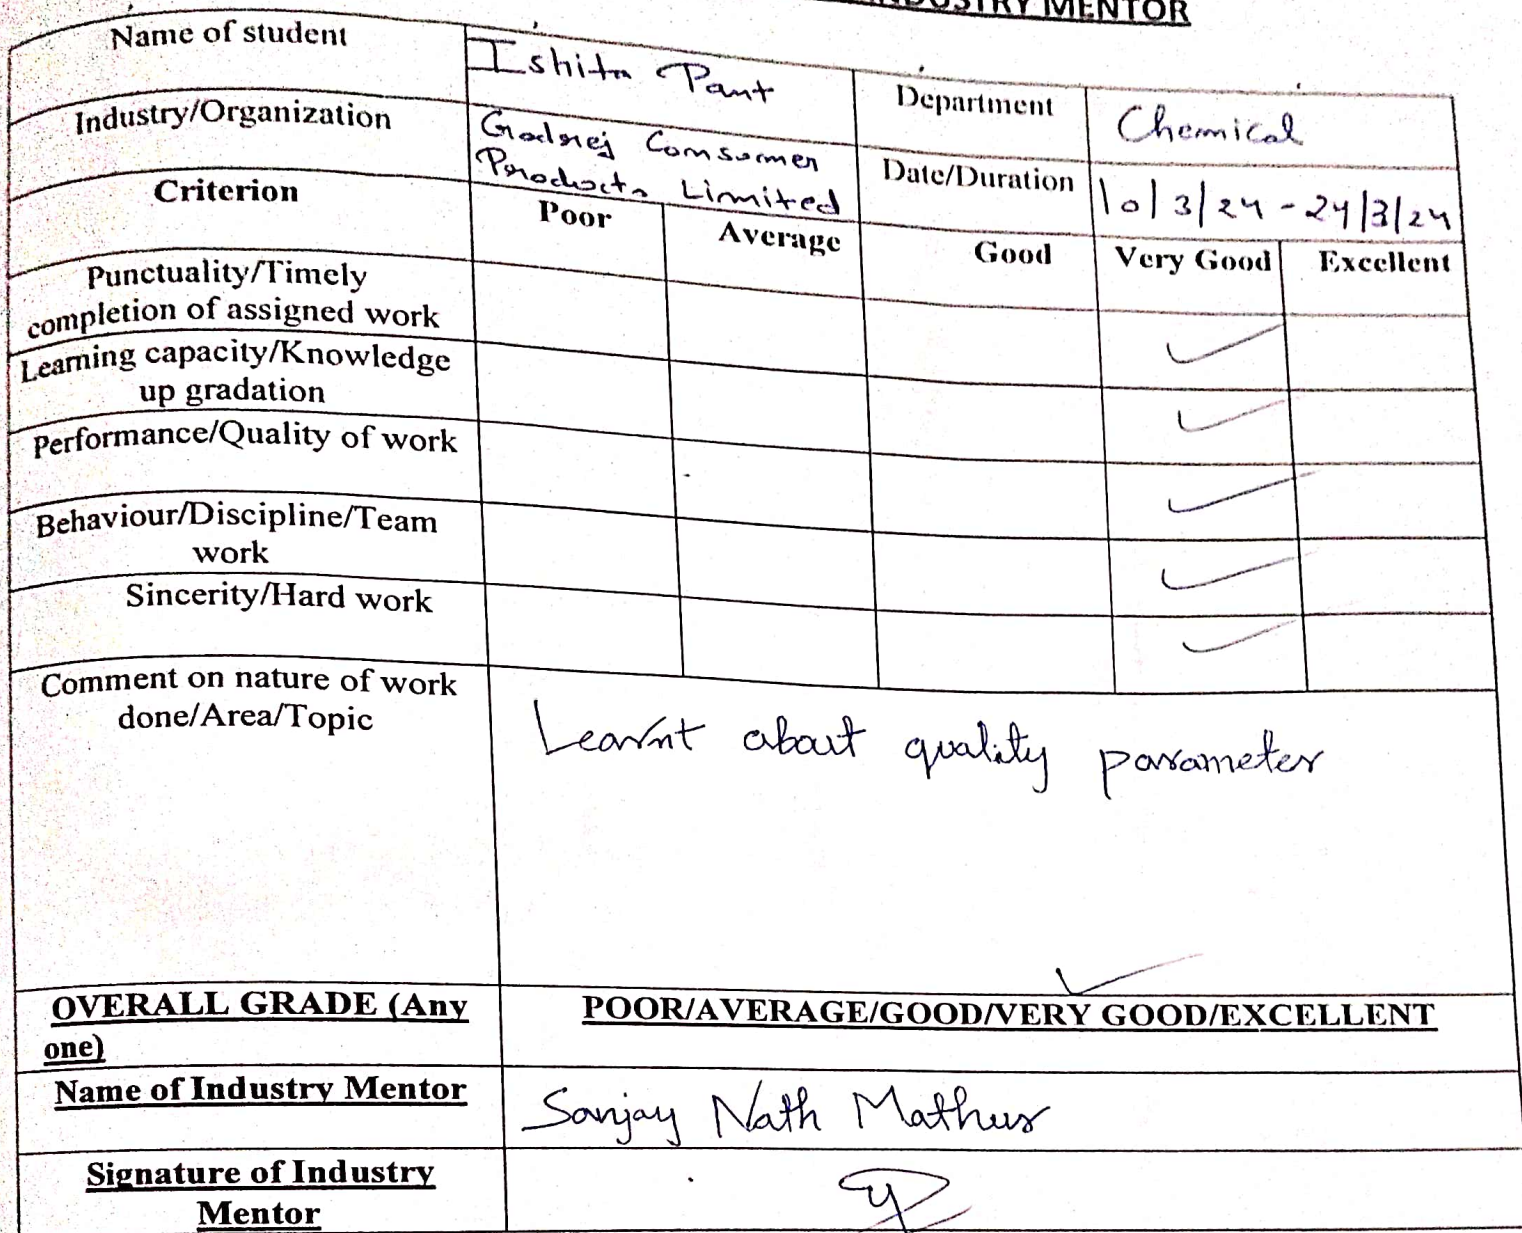 INDUSTRY MENTOR
Name of student
Ishita Pant
Department
Chemical
Industry/Organization
Godrej Consumer
Products Limited
Date/Duration
10/3/24 - 24/3/24
Criterion
Poor
Average
Good
Very Good
Excellent
Punctuality/Timely
completion of assigned work
Learning capacity/Knowledge
up gradation
Performance/Quality of work
Behaviour/Discipline/Team
work
Sincerity/Hard work
Comment on nature of work
done/Area/Topic
Learnt about quality parameter
OVERALL GRADE (Any
one)
POOR/AVERAGE/GOOD/VERY GOOD/EXCELLENT
Name of Industry Mentor
Sanjay Nath Mathur
Signature of Industry
Mentor